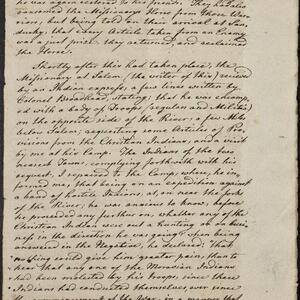 he was again restored to his friends. They had also
ransomed the Missionary's Horse from those War-
riors, but being told on their arrival at San-
dusky; that every Article taken from an Enemy
was a just prize, they returned, and reclaimed
the Horse.
Shortly after this had taken place, the
Missionary at Salem, (the writer of this) received
by an Indian express, a few lines written by
Colonel Broadhead, stating; that he was encamp-
ed with a body of Troops, regulars and Militia
on the opposite side of the River; a few Miles
below Salem; requesting some Articles of Pro-
visions from the Christian Indians, and a visit
by me at his Camp. The Indians of the two
nearest Towns, complying forthwith with his
request, I repaired to the Camp; where, he in-
formed me; that being on an expedition against
a band of hostile Indians, at near the forks
of the River; he was anxious to know, before
he proceeded any further on, whether any of the
Christian Indians were out a hunting, or on busi-
ness in the direction he was going? when being
answered in the Negative, he declared: That
nothing could give him greater pain, than to
hear that any one of the Moravian Indians
had been molested by his troops; since these
Indians had conducted themselves, ever since
the commencement of the War, in a manner that